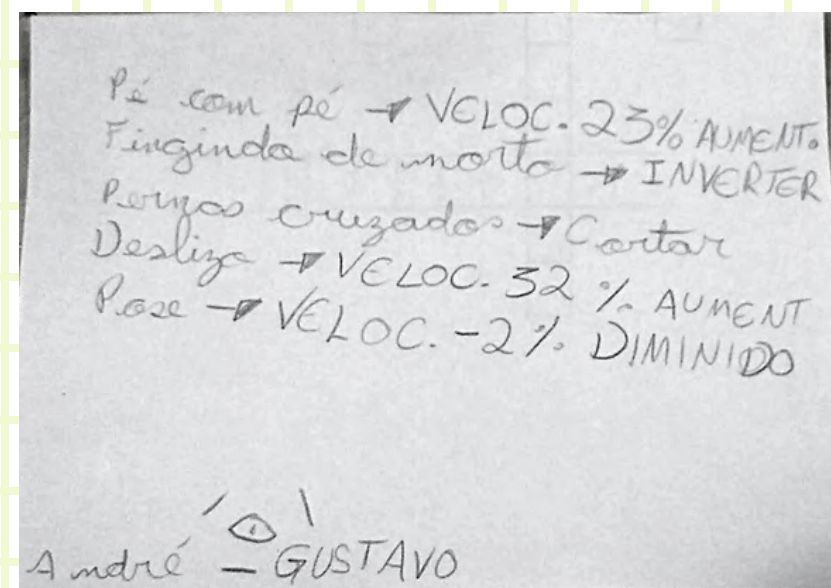 Pé com pé → VELOC. 23% AUMENT.
Fingindo de morto → INVERTER
Pernas cruzados → Cortar
Desliza → VELOC. 32 % AUMENT
Pose → VELOC. -2% DIMINIDO
André - GUSTAVO